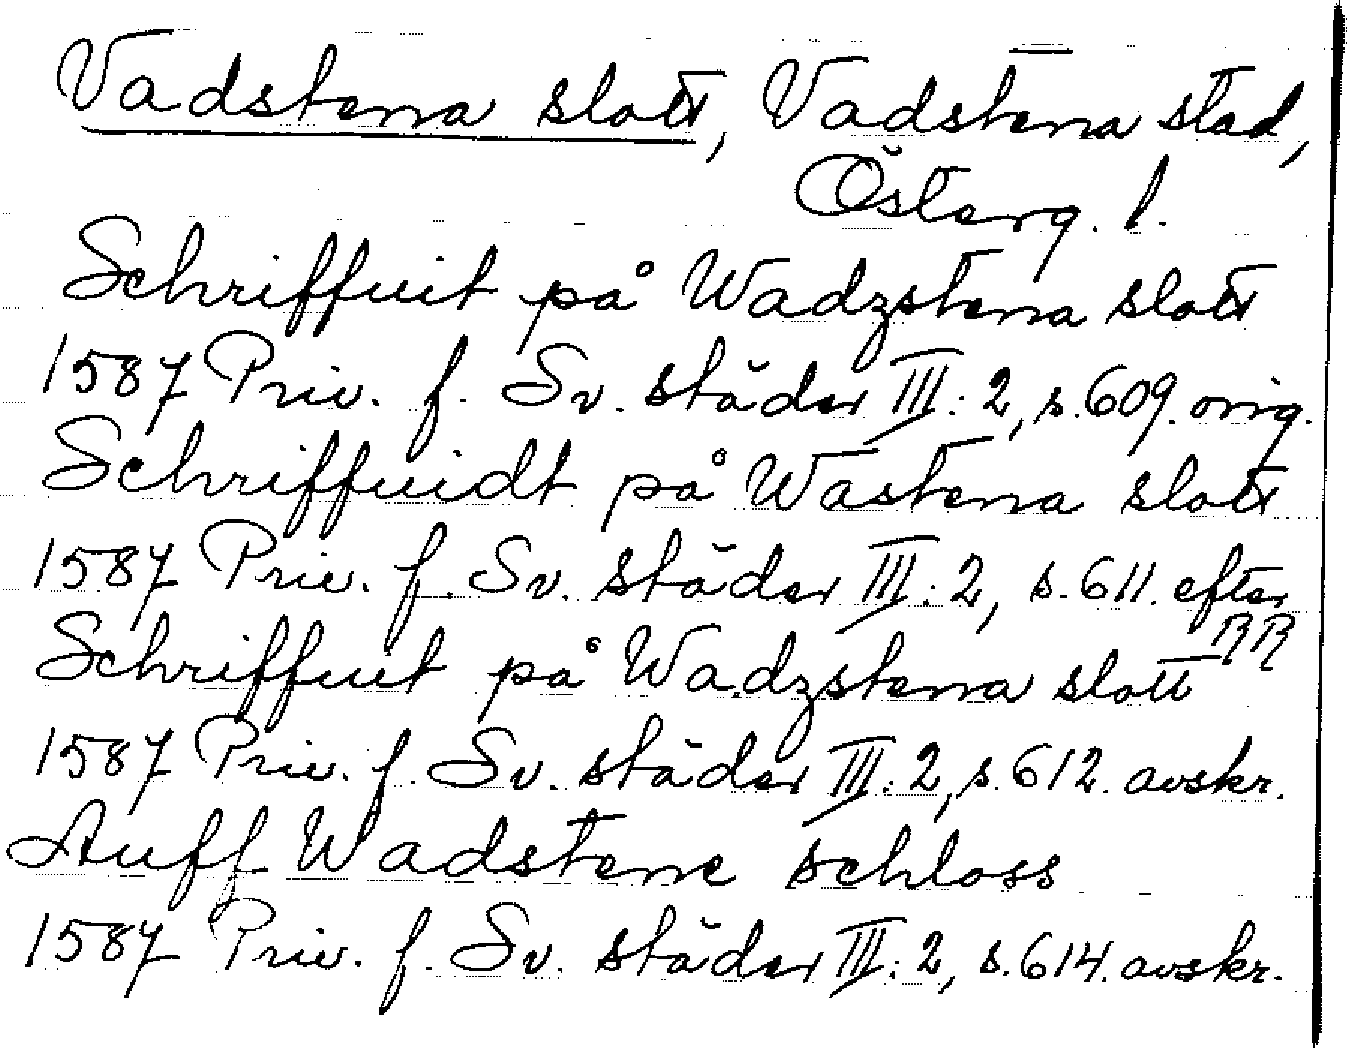 Vadstena slott, Vadstena stad,
Österg. l.
Schriffuit på Wadzstena slott
1587 Priv. f. Sv. städer III: 2, s. 609. orig.
Schriffuidt på Wastena slott
1587 Priv. f. Sv. städer III: 2, s. 611. efter
RR
Schriffuit på Wadzstena slott
1587 Priv. f. Sv. städer III: 2, s. 612. avskr.
Auff Wadstene schloss
1587 Priv. f. Sv. städer III: 2, s. 614. avskr.